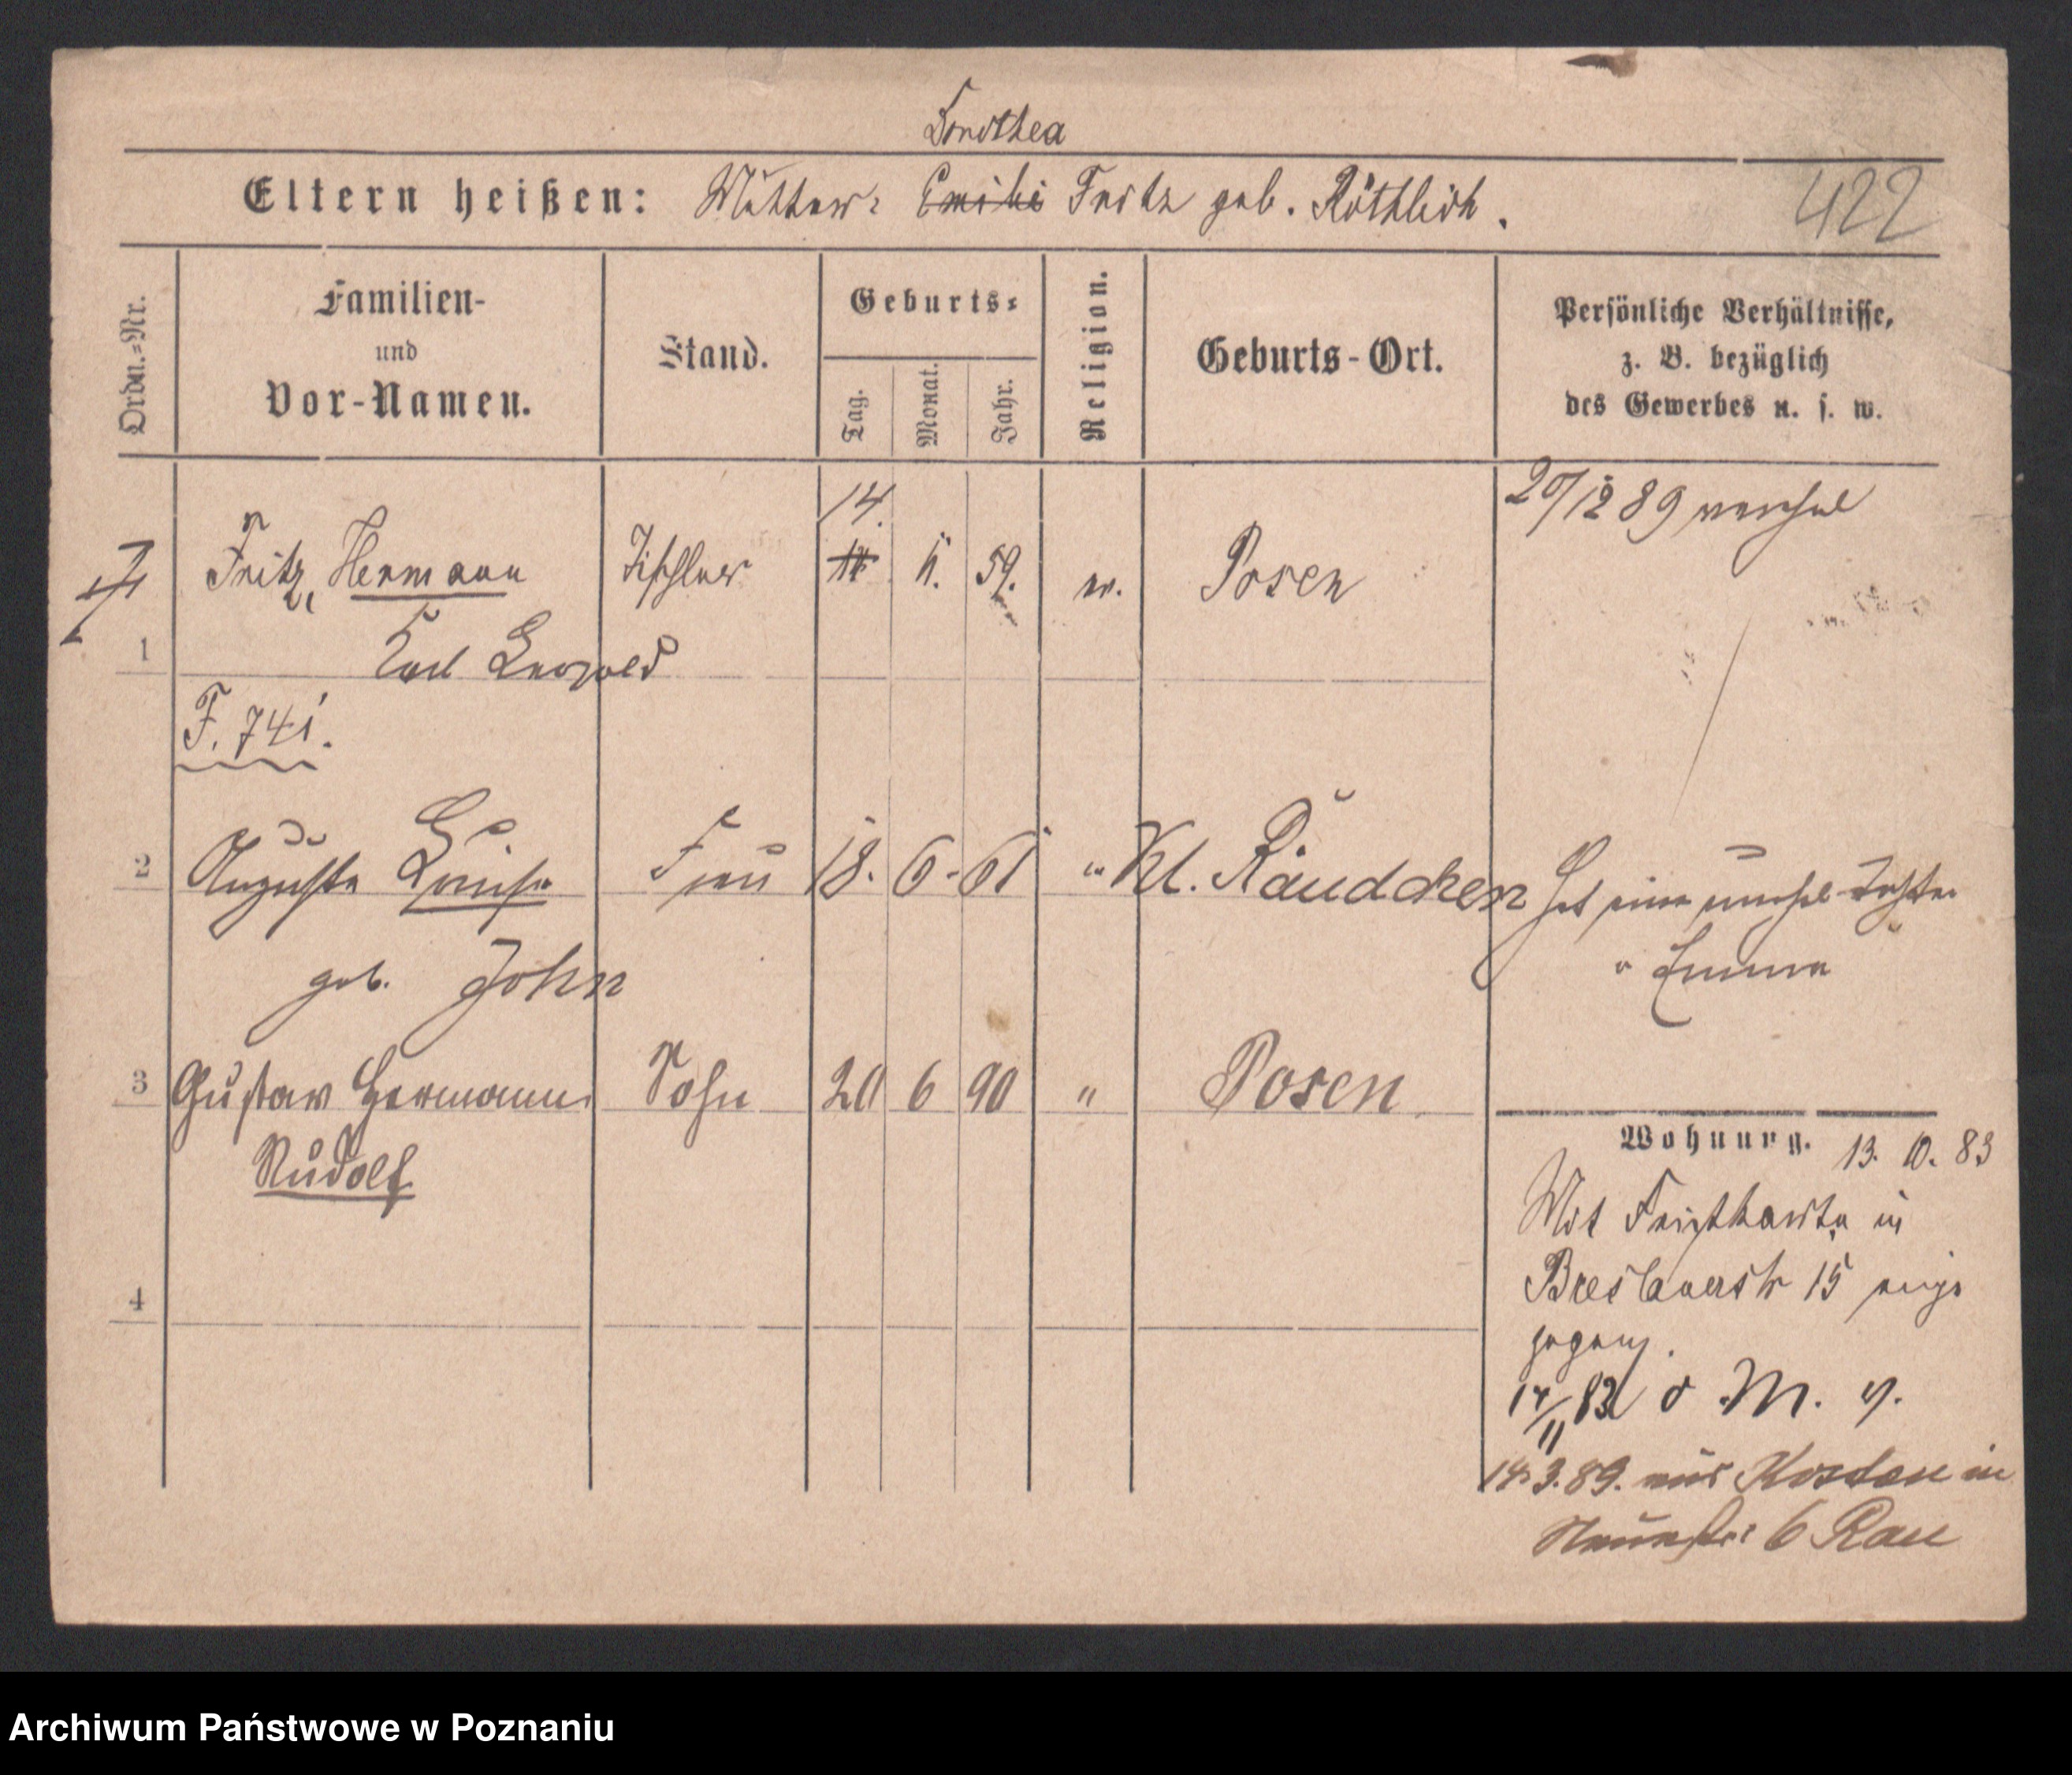 Dorothea
Eltern heißen: Mutter: Emilie Fritz geb. Röthlich.
422
Ordn.=Nr.
Familien-
und
Vor-Namen.
Stand.
Geburts=
Tag.
Monat.
Jahr.
Religion.
Geburts-Ort.
Persönliche Verhältnisse,
z. B. bezüglich
des Gewerbes u. s. w.
20/12 89
14.
1 Fritz, Hermann Tischler 59. ev. Posen
Karl Leopold
F. 741.
2 Auguste Louise Frau 18. 6. 61 " Kl. Räudchen hat eine unehel Tochter
geb. John
" Emma "
3 Gustav Hermann Sohn 20 6 90 " Posen
Rudolf
Wohnung. 13. 10. 83
Mit in
Breslauerstr 15
4
14/11 83 M.
14.3.89. aus Kosten in
6 Rau
Archiwum Państwowe w Poznaniu